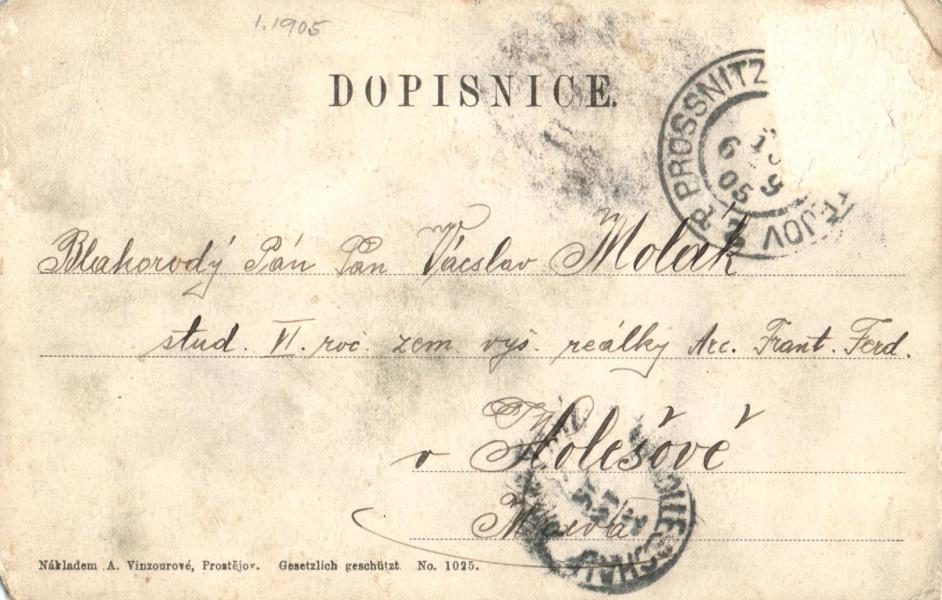 1.1905
DOPISNICE.
PROSSNITZ
6 1
05 9
Blahorodý Pán Pan Vácslav Molák
stud. VI. roč. zem. vyš. reálky Arc. Frant. Ferd.
v Holešově
Morava
Nákladem A. Vinzourové, Prostějov. Gesetzlich geschützt. No. 1025.